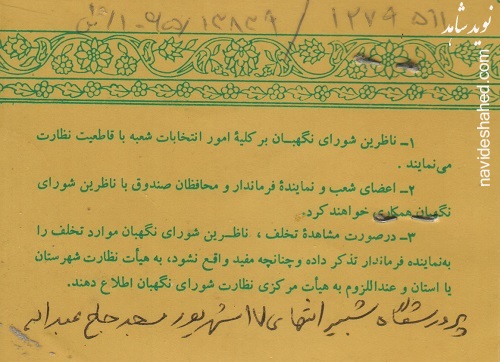 ۱۲۷۹۵۱۱ / ۱۳۸۳۹
نوید شاهد
navideshahed.com
۱- ناظرین شورای نگهبان بر کلیهٔ امور انتخابات شعبه با قاطعیت نظارت
می‌نمایند .
۲- اعضای شعب و نمایندهٔ فرماندار و محافظان صندوق با ناظرین شورای
نگهبان همکاری خواهند کرد.
۳- درصورت مشاهدهٔ تخلف ، ناظرین شورای نگهبان موارد تخلف را
به‌نماینده فرماندار تذکر داده و چنانچه مفید واقع نشود، به هیأت نظارت شهرستان
یا استان و عنداللزوم به هیأت مرکزی نظارت شورای نگهبان اطلاع دهند.
پرورشگاه شبیر انتهای ۱۷ شهریور مسجد حاج عبداله